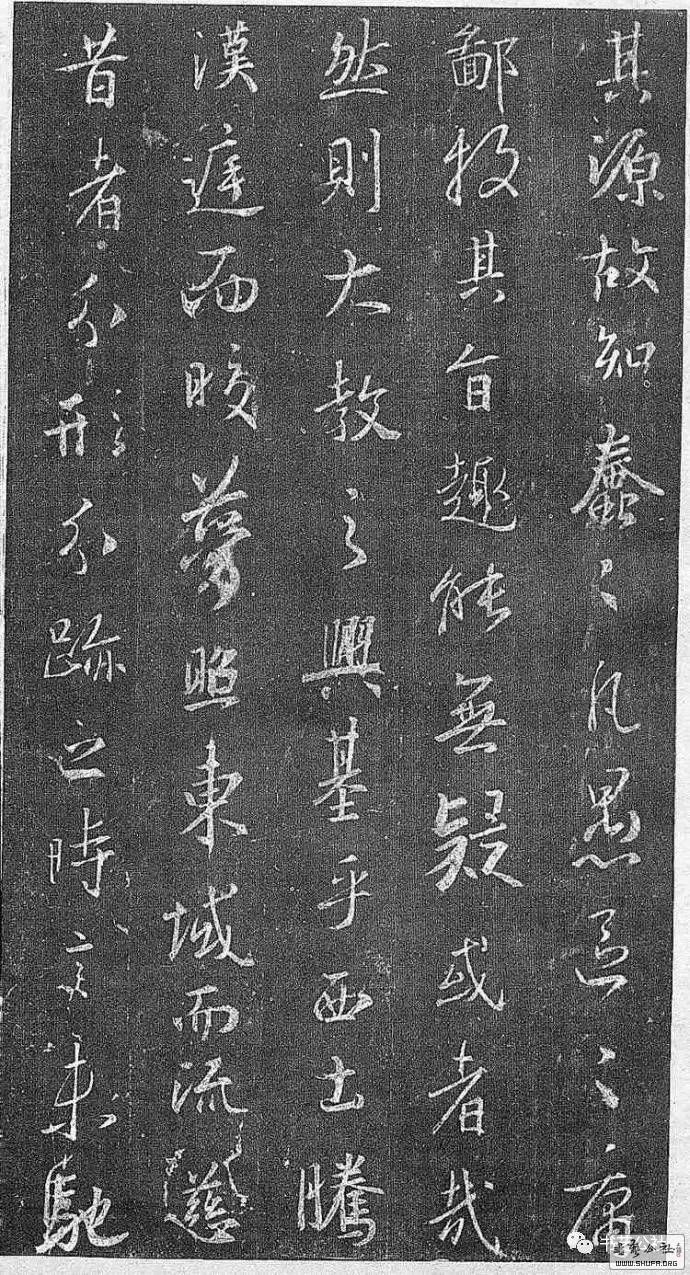 其源故知蠢〻凡愚區〻庸
鄙投其旨趣能無疑或者哉
然則大教之興基乎西土騰
漢庭而晈夢照東域而流慈
昔者分形分跡之時言未馳
书艺公社
WWW.SHUFA.ORG